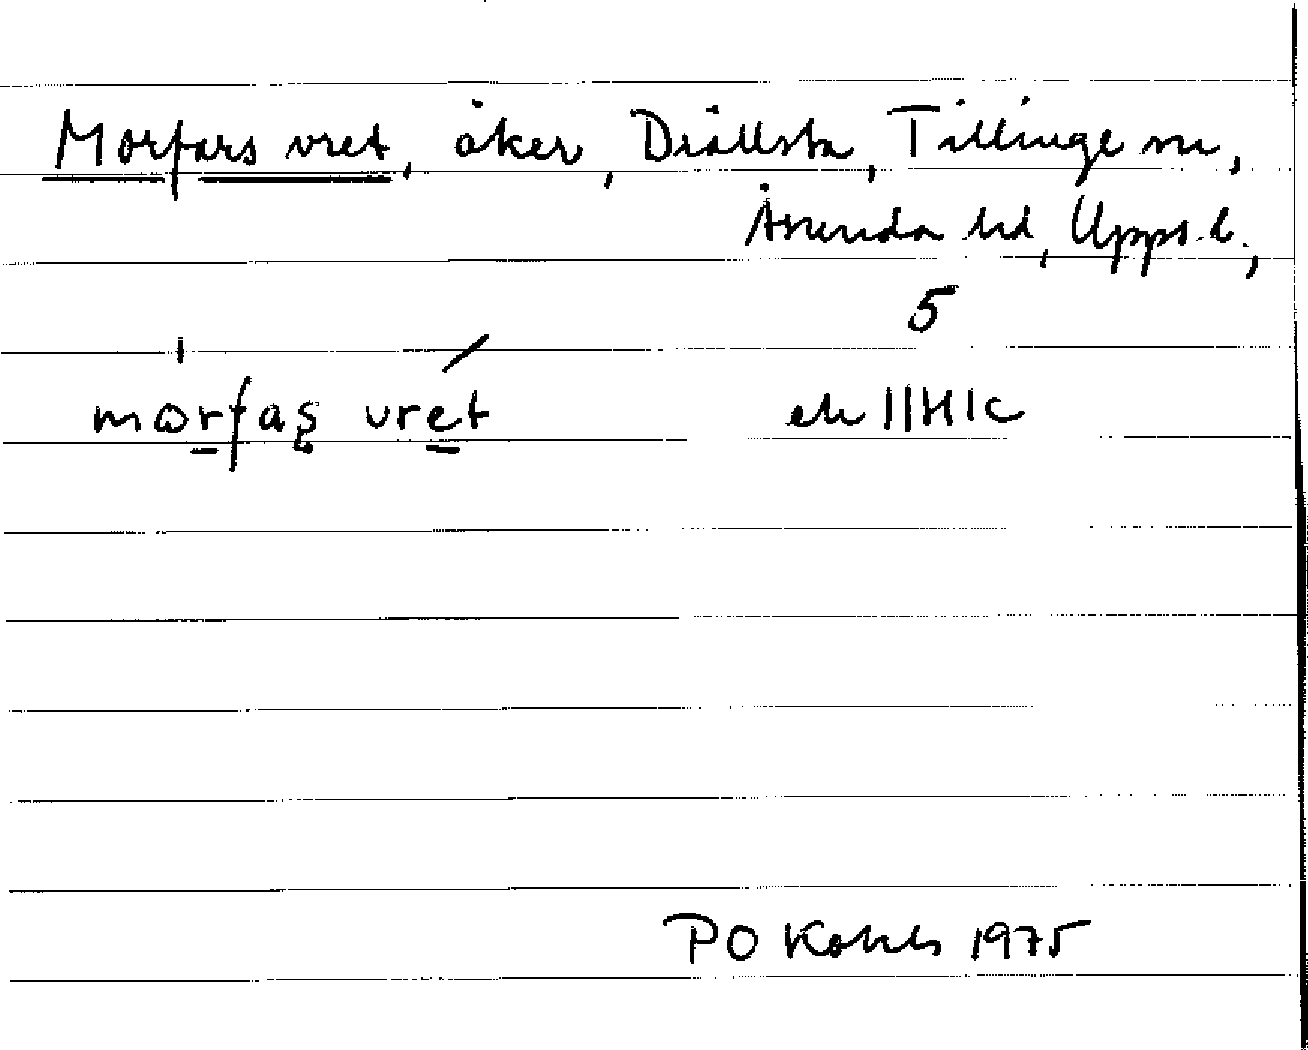 Morfars vret, åker, Drällsta, Tillinge sn,
Åsunda hd, Upps. l.,
5
morfaş vret ek 11H1c
P O Kohls 1975